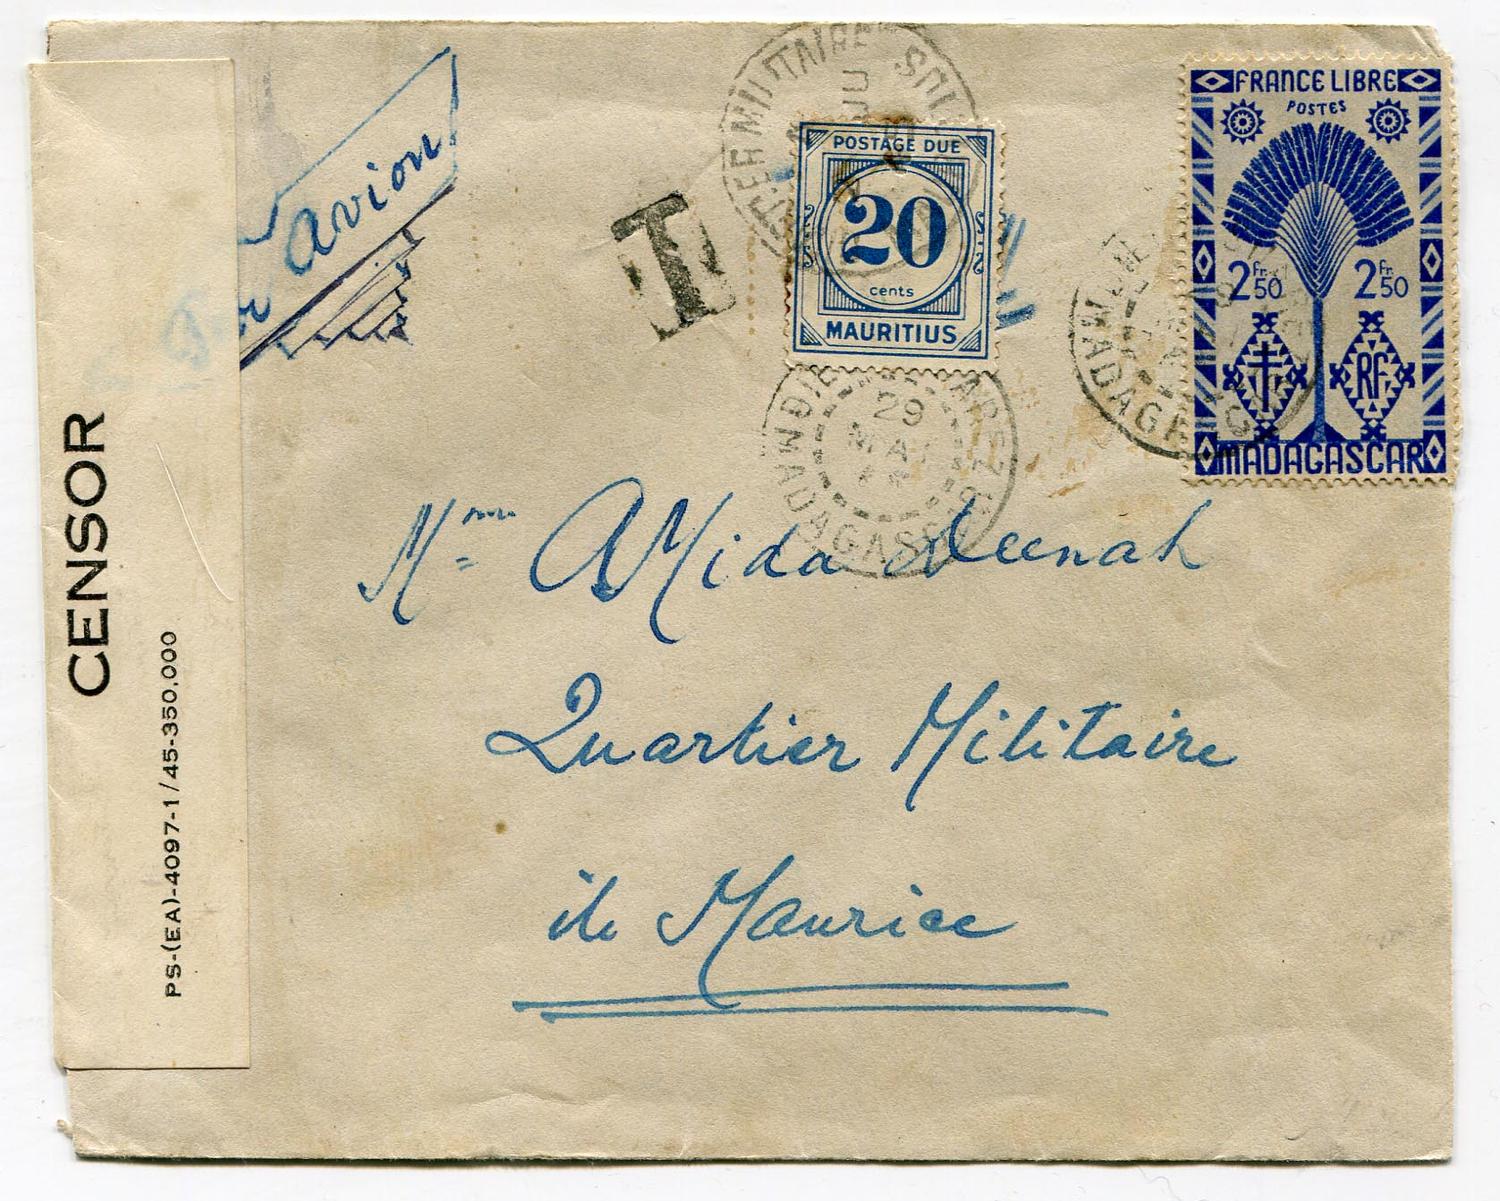 CENSOR
PS-(EA)-4097-1/45-350,000
Par avion
T
POSTAGE DUE
20
cents
MAURITIUS
FRANCE LIBRE
POSTES
2 Fr. 50
2 Fr. 50
RF
MADAGASCAR
29
MAI
MADAGASCAR
MADAGASCAR
Mme AMida Deenah
Quartier Militaire
ile Maurice